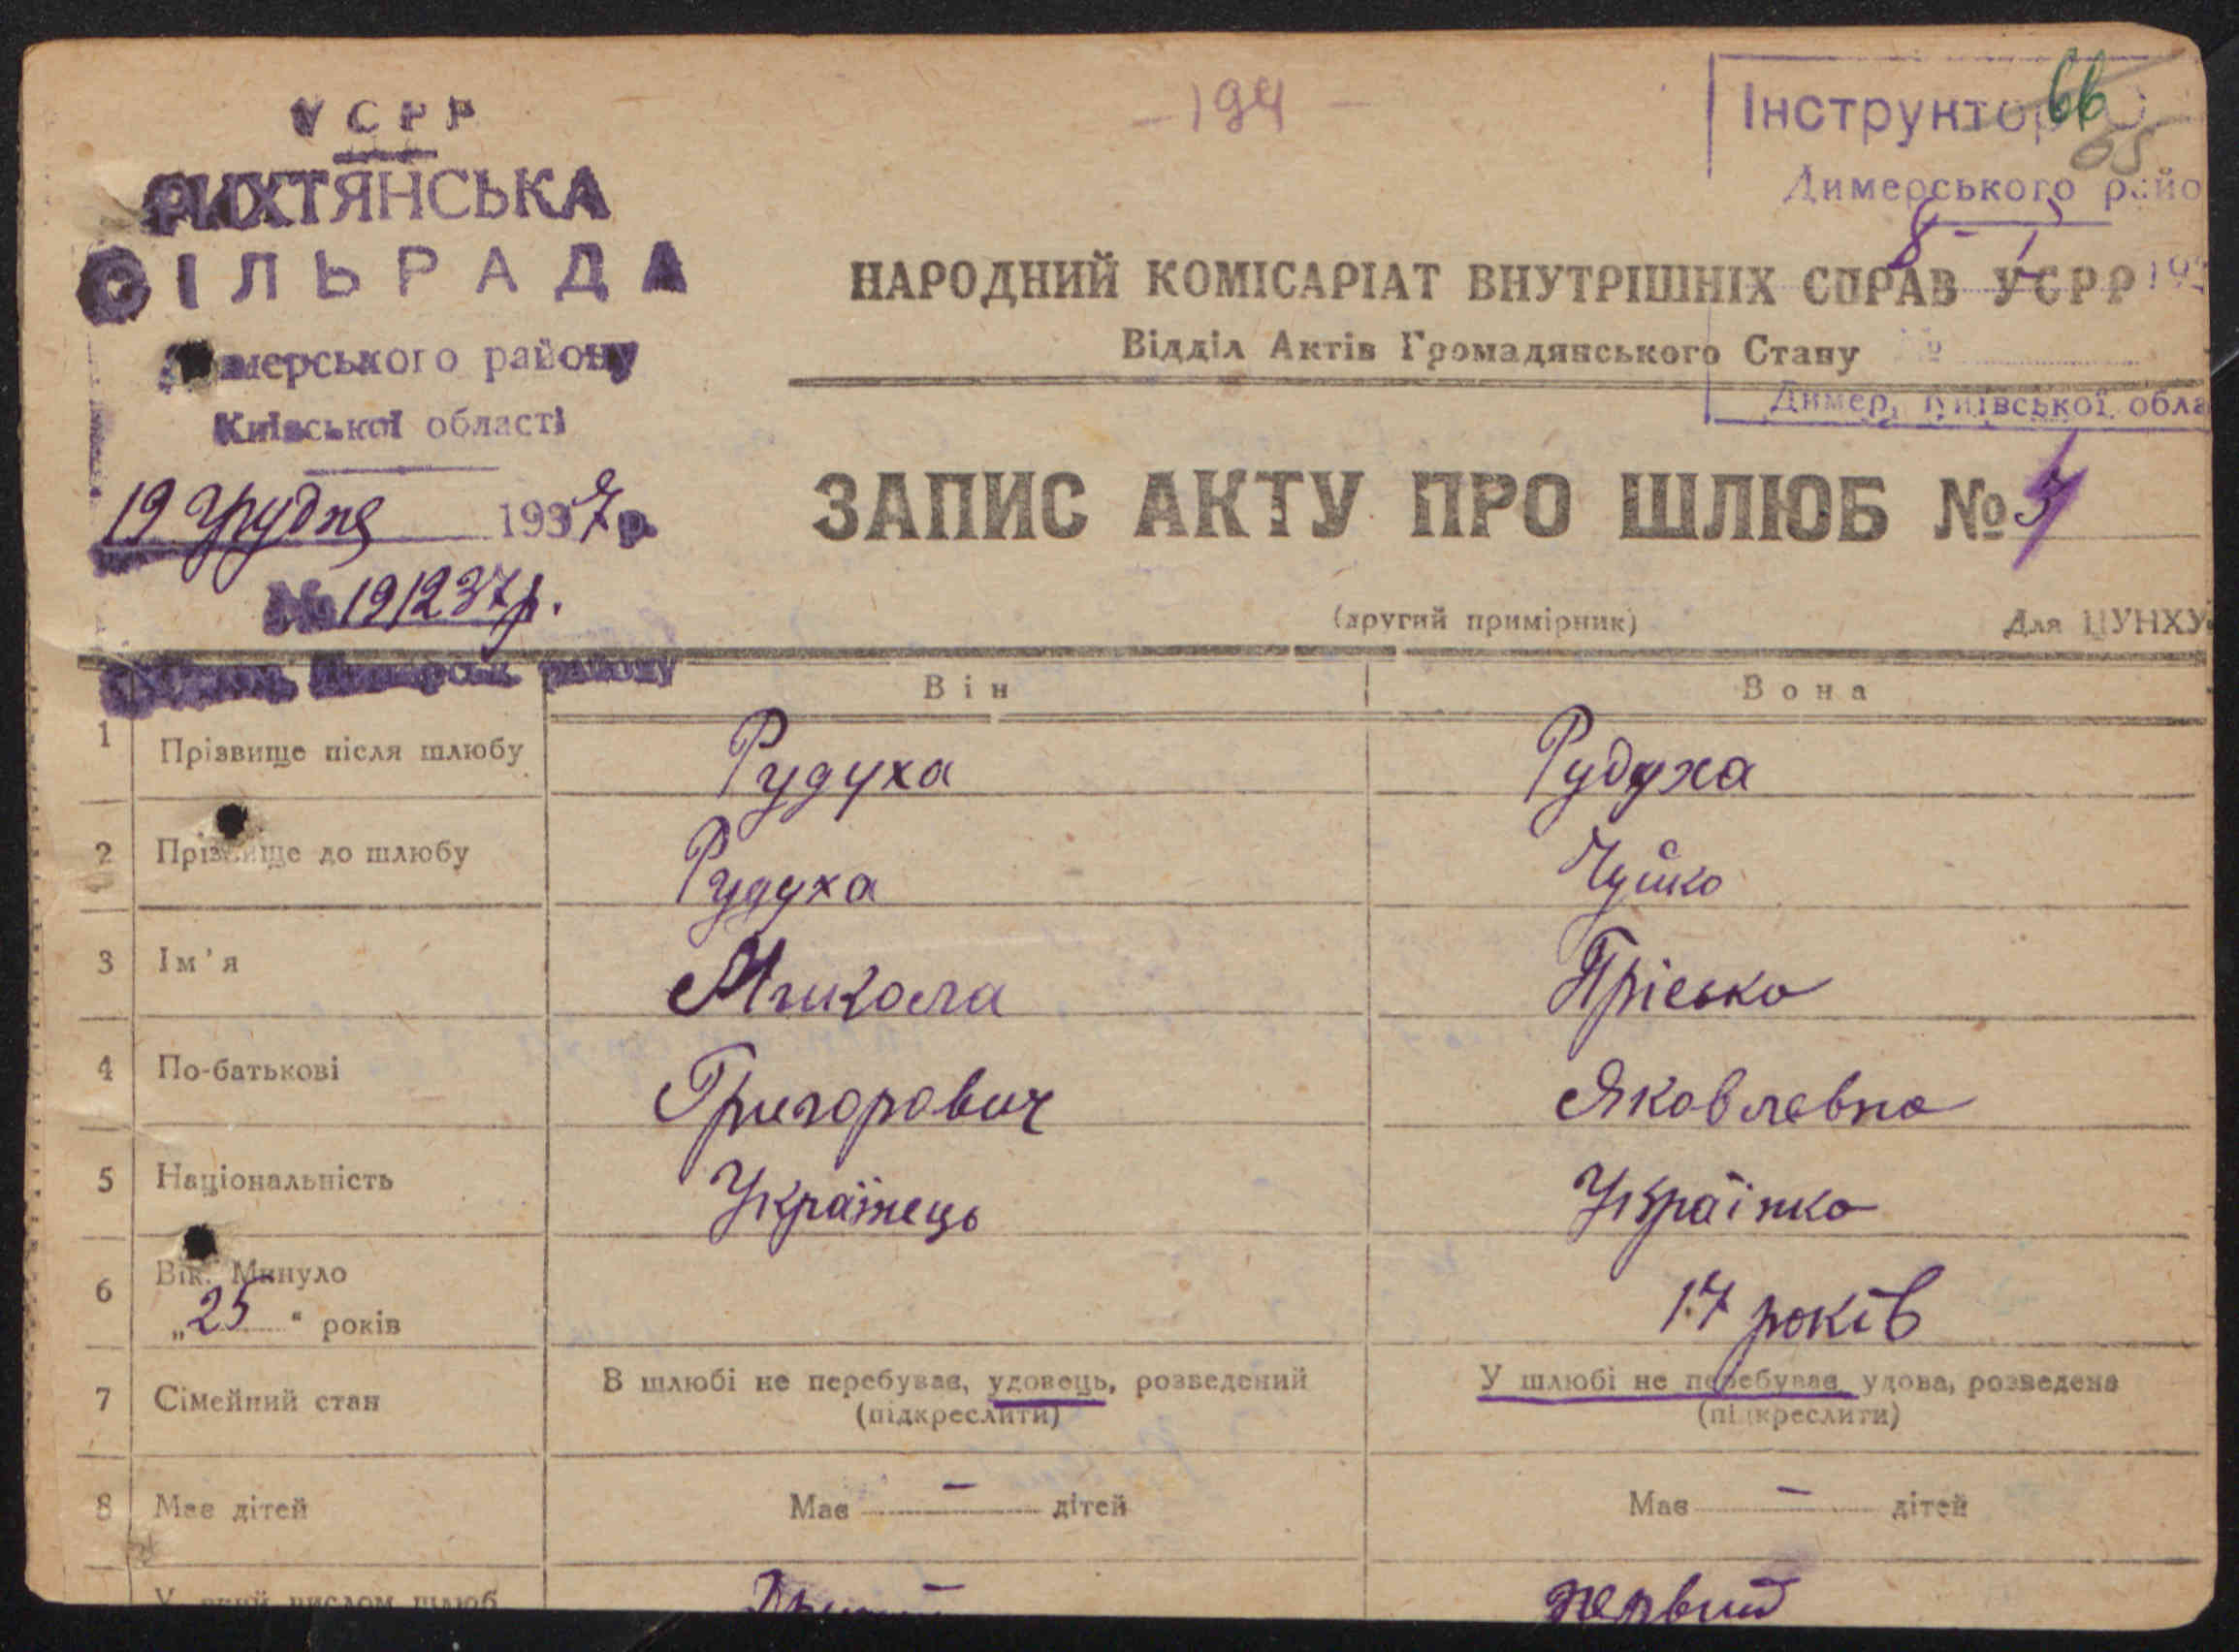 УСРР
РИХТЯНСЬКА
СІЛЬРАДА
Димерського району
Київської області
19 грудня 1937 р.
№ 191237 р.
району
- 194 -
66
65
Інструктор
Димерського райо
8 - I 193
НАРОДНИЙ КОМІСАРІАТ ВНУТРІШНІХ СПРАВ УСРР
Відділ Актів Громадянського Стану
№
Димер, Київської обла
ЗАПИС АКТУ ПРО ШЛЮБ №
(другий примірник) Для ЦУНХУ
Він Вона
1 Прізвище після шлюбу Рудуха Рудуха
2 Прізвище до шлюбу Рудуха Чуйко
3 Ім'я Микола Прісько
4 По-батькові Григорович Яковлевна
5 Національність Українець Українко
6 Вік. Минуло
„25“ років 17 років
7 Сімейний стан В шлюбі не перебував, удовець, розведений У шлюбі не перебувае, удова, розведена
(підкреслити) (підкреслити)
8 Має дітей Має — дітей Має — дітей
числом шлюб первий